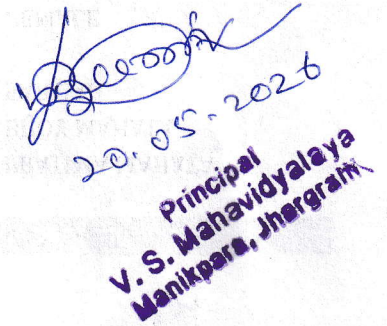 20.05.2026
Principal
V. S. Mahavidyalaya
Manikpara, Jhargram